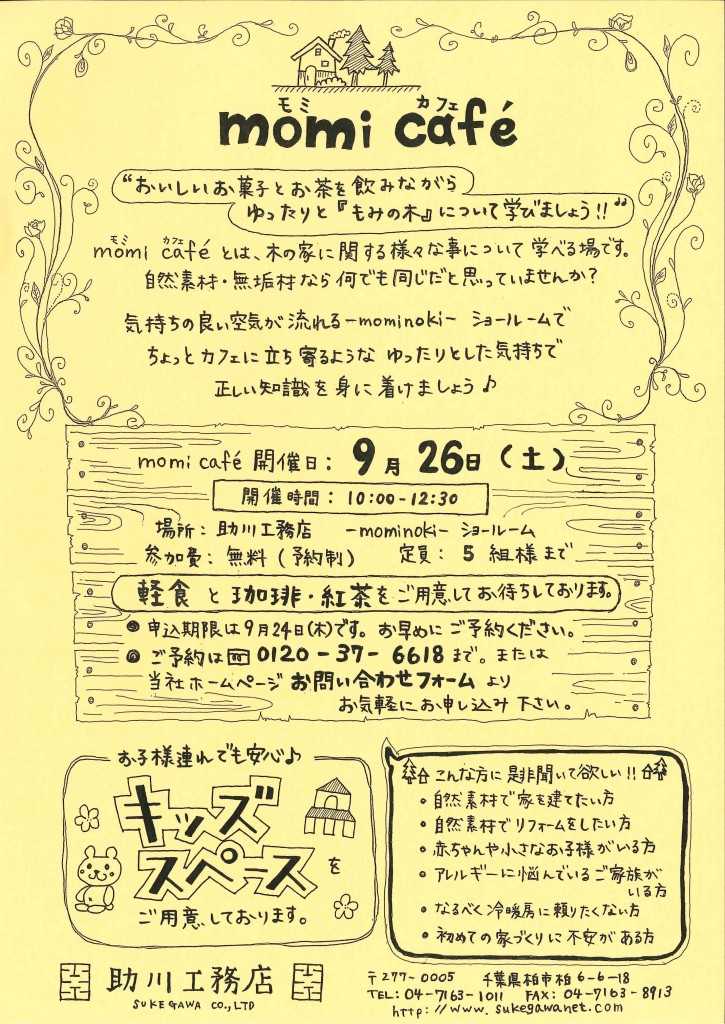 モミ カフェ
momi café
“おいしいお菓子とお茶を飲みながら
ゆったりと『もみの木』について学びましょう!!”
モミ カフェ
momi café とは、木の家に関する様々な事について学べる場です。
自然素材・無垢材なら何でも同じだと思っていませんか?
気持ちの良い空気が流れる-mominoki- ショールームで
ちょっとカフェに立ち寄るような ゆったりとした気持ちで
正しい知識を身に着けましょう♪
momi café 開催日: 9月 26日(土)
開催時間: 10:00-12:30
場所: 助川工務店 -mominoki- ショールーム
参加費: 無料(予約制) 定員: 5 組様まで
軽食と珈琲・紅茶をご用意してお待ちしております。
● 申込期限は9月24日(木)です。お早めにご予約ください。
● ご予約は☎0120-37-6618まで。または
当社ホームページ お問い合わせフォームより
お気軽にお申し込み下さい。
お子様連れでも安心♪
キッズ
スペースを
ご用意しております。
こんな方に是非聞いて欲しい!!
• 自然素材で家を建てたい方
• 自然素材でリフォームをしたい方
• 赤ちゃんや小さなお子様がいる方
• アレルギーに悩んでいるご家族が
いる方
• なるべく冷暖房に頼りたくない方
• 初めての家づくりに不安がある方
助川工務店
SUKEGAWA CO.,LTD
〒277-0005 千葉県柏市柏6-6-18
TEL: 04-7163-1011 FAX: 04-7163-8913
http://www.sukegawanet.com